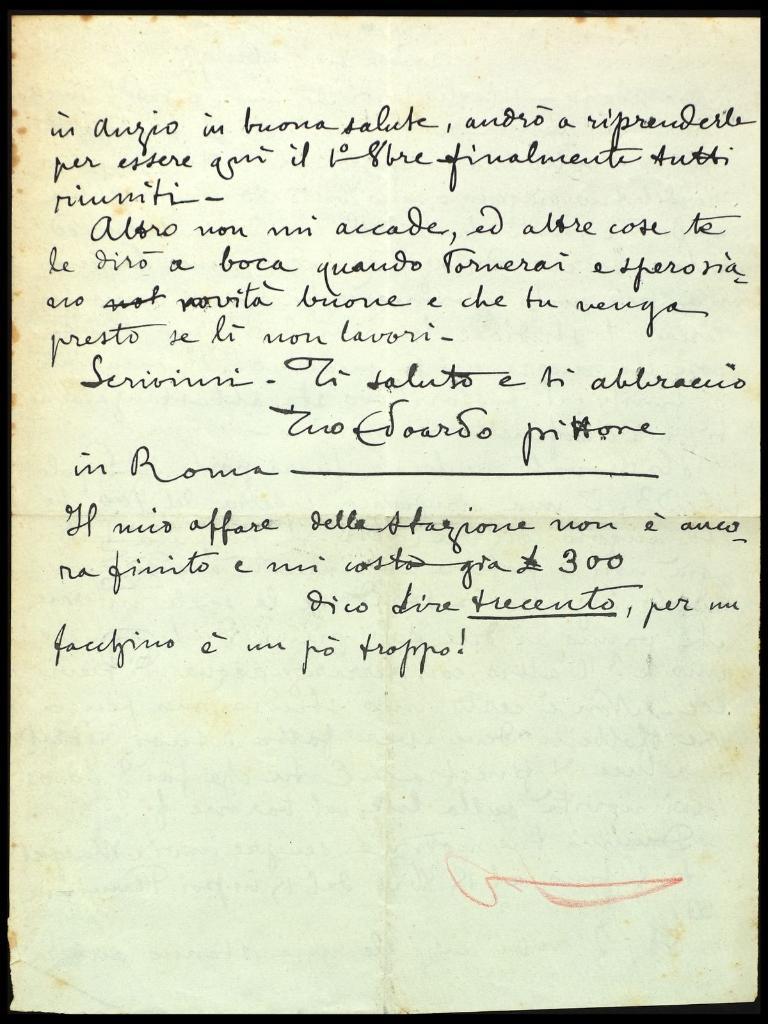 in Anzio in buona salute, andrò a riprenderle
per essere qui il 1º 8bre finalmente tutti
riuniti –
Altro non mi accade, ed altre cose te
le dirò a boca quando Tornerai e spero sia-
no novità buone e che tu venga
presto se lì non lavori –
Scrivimi – Ti saluto e ti abbraccio
Tuo Edoardo pittore
in Roma
Il mio affare della stazione non è anco-
ra finito e mi costa già £ 300
dico Lire trecento, per un
facchino è un pò troppo!